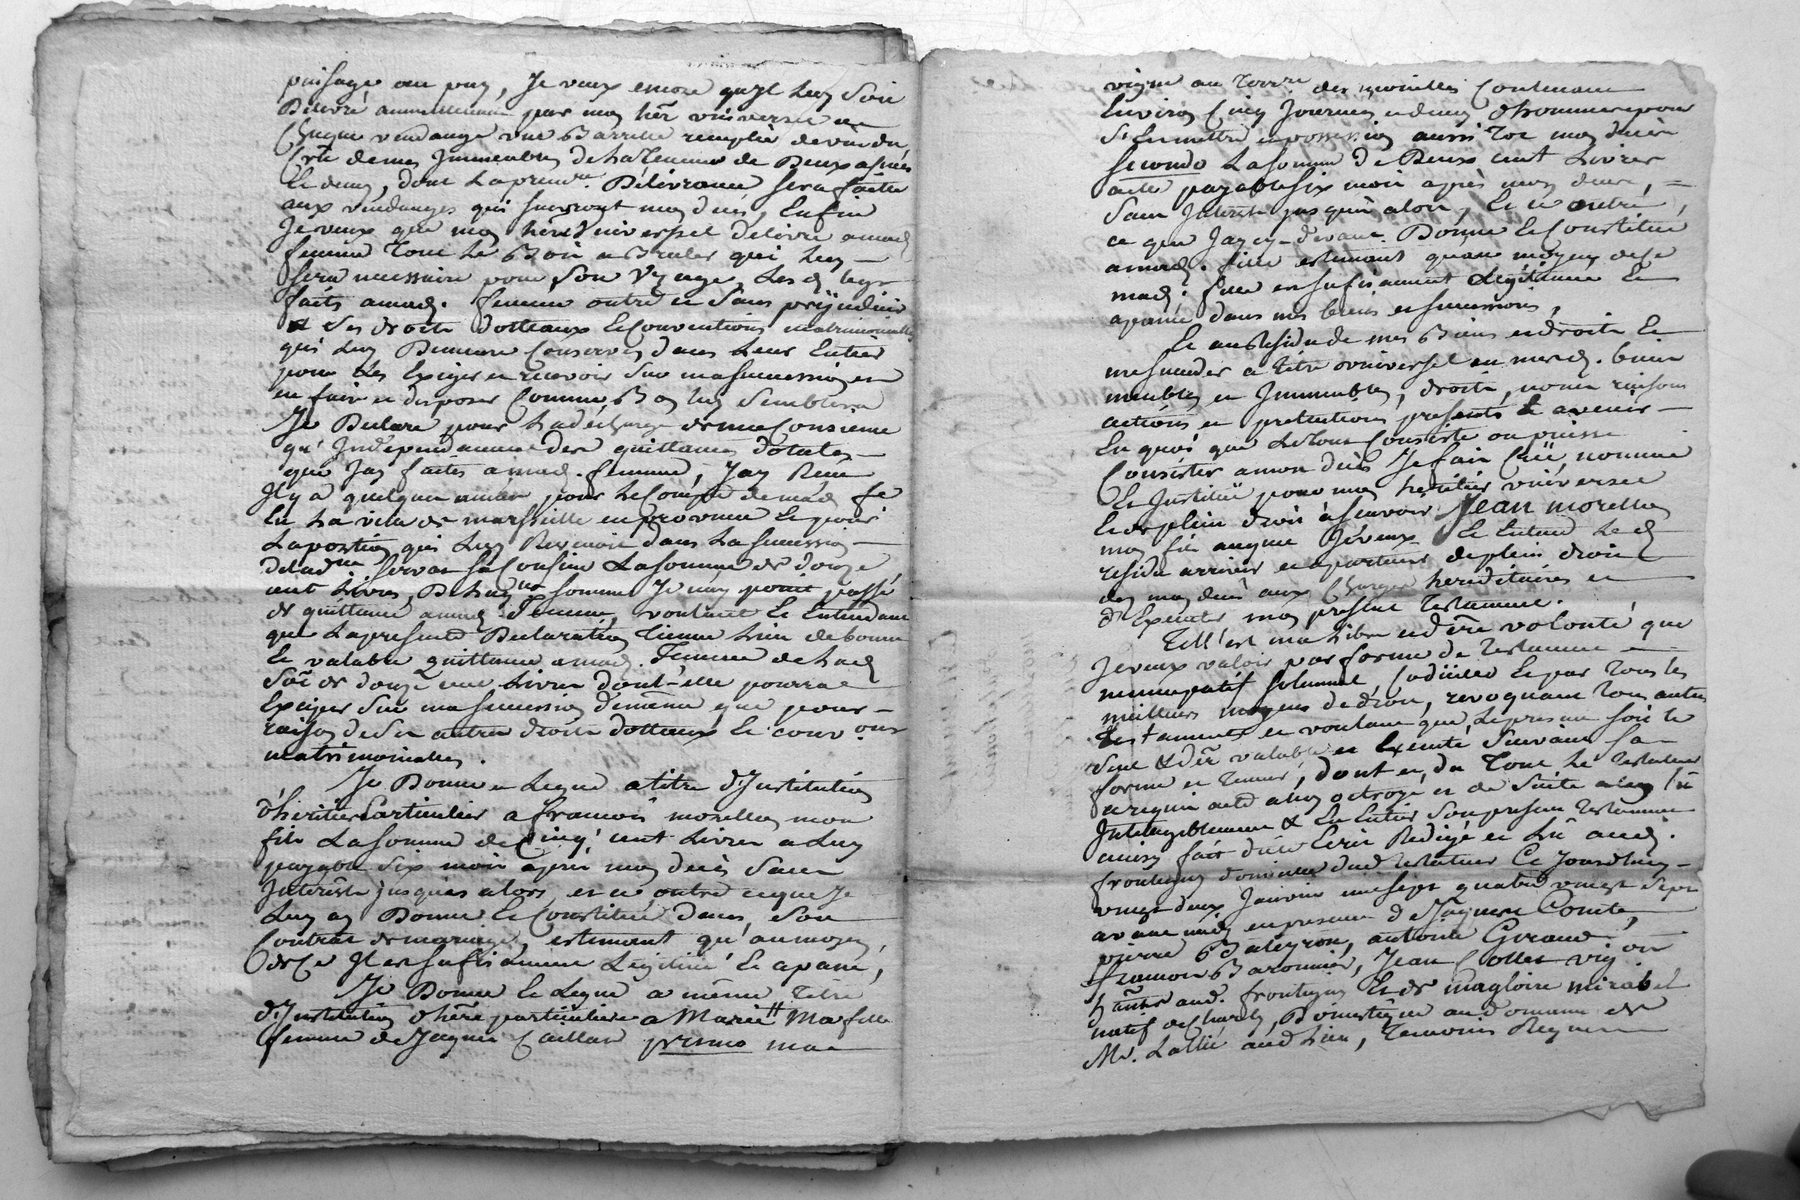 puisage au puy, Je veux encore qu'il luy Soit
Délivré annuellement par mon hér universel a
Chaque vendange une Barrille remplie de vin du
Crû de mes Jmmeubles de la Teneur de Deux
le demy, dont la premre Délivrance sera faite
aux vendanges qui suivront mon décès, Enfin
Je veux que mon héret Universel délivre a mad
femme Tout le Bois a Bruler qui luy
Sera necessaire pour Son Usage Les d legs
faits a mad. femme outre et Sans préjudice
a Ses droits Dotteaux et Conventions matrimonialles
qui luy Demeurent Conservés dans Leur Entier
pour les Exiger et recevoir Sur ma Succession et
en faire et disposer Comme Bon luy Semblera
Je Declare pour la décharge de ma Consience
qu'Jndépendament des quittances Dotales
que J'ay faites a mad. femme, J'ay Reçu
Il y a quelques années pour le Compte de mad fe
En la ville de marseille en provence Et pour
La portion qui Luy Revenoit dans La Succession
de Sa Cousine La Somme de douze
cent Livres, De laqlle Somme Je n'ay point passé
de quittance a mad femme, voulant Et Entendant
que La presente Declaration Tienne Lieu de bonne
Et valable quittance a mad. femme de lad
Soe de douze cent Livres dont elle pourra
Exiger Sur ma Succession de même que pour
raison de Ses autres droits dotteaux Et conv ons
matrimonialles.
Je Donne et Legue a titre d'Jnstitution
d'héritier Particulier a françois morellon mon
fils La Somme de Cinq cent Livres a Luy
payable Six mois apres mon décès Sans
Jnterêts jusques alors, et ce outre ce que Je
Luy ay Donné Et Constitué dans Son
Contrat de mariage, estimant qu'au moyen
de Ce Il est Sufisamment Légitimé Et apané,
Je Donne Et Legue a même Titre
d'Jnstitution d'hére particuliere a Marie Ma fille
femme de Jaques Caillat primo ma
vigne au Terrre des Contenant
Environ Cinq Journées et demy d'hommes pour
S'En mettre en possession aussi Tot mon décès
Secondo La Somme de Deux cent Livres
a elle payable Six mois après mon décès,
Sans Jnterêts jusqu'à alors, Et ce outre,
ce que J'ay cy-devant Donné Et Constitué
a mad. fille estimant qu'au moyen de Ce
mad. fille est Sufisament Légitimée Et
apanée dans mes biens et Successions,
Et au Residu de mes Biens et droits Et
me Succeder a titre universel en mes d. biens
meubles et Jmmeubles, droits, noms raisons
actions et pretentions presents & avenir
En quoi que Le tout Consiste ou puisse
Consister a mon décès Je fais Créé nomme
Et Jnstitüe pour mon heritier universel
Et de plein droit à Scavoir Jean morellon
mon fils auquel Je veux Et Entend Le d
residu arriver et apartenir de plein droit
dès mon décès aux Charges hereditaires et
d'Executer mon présent Testament.
Tell'est ma Libre et dére volonté que
Je veux valoir par forme de Testament
nuncupatif solemnel, Codicille Et par Tous les
meilleurs moyens de droit, revoquant Tous autres
Testaments et voulant que Le present Soit le
Seul & dér valable et Executé Suivant Sa
forme et Teneur, dont et, du Tout Le Testateur
a requis acte a luy octroyé et de Suite a luy lû
Jntelligiblement & En Entier Son present Testament
ainsy fait dicté Ecrit Redigé et Lû aud.
frontigny domicile dud Testateur Ce Jourd'huy
vingt deux Janvier mil Sept quatre vingt Sept
avant midy en presence de Jaques Comte,
pierre Baleyron, antoine Giraud,
françois Baronnier, Jean Collet vig. on
hāns aud. frontigny Et de magloire mirabel
natif de , Domestique au Domaine de
Mr. Lallié aud Lieu, Temoins Requis